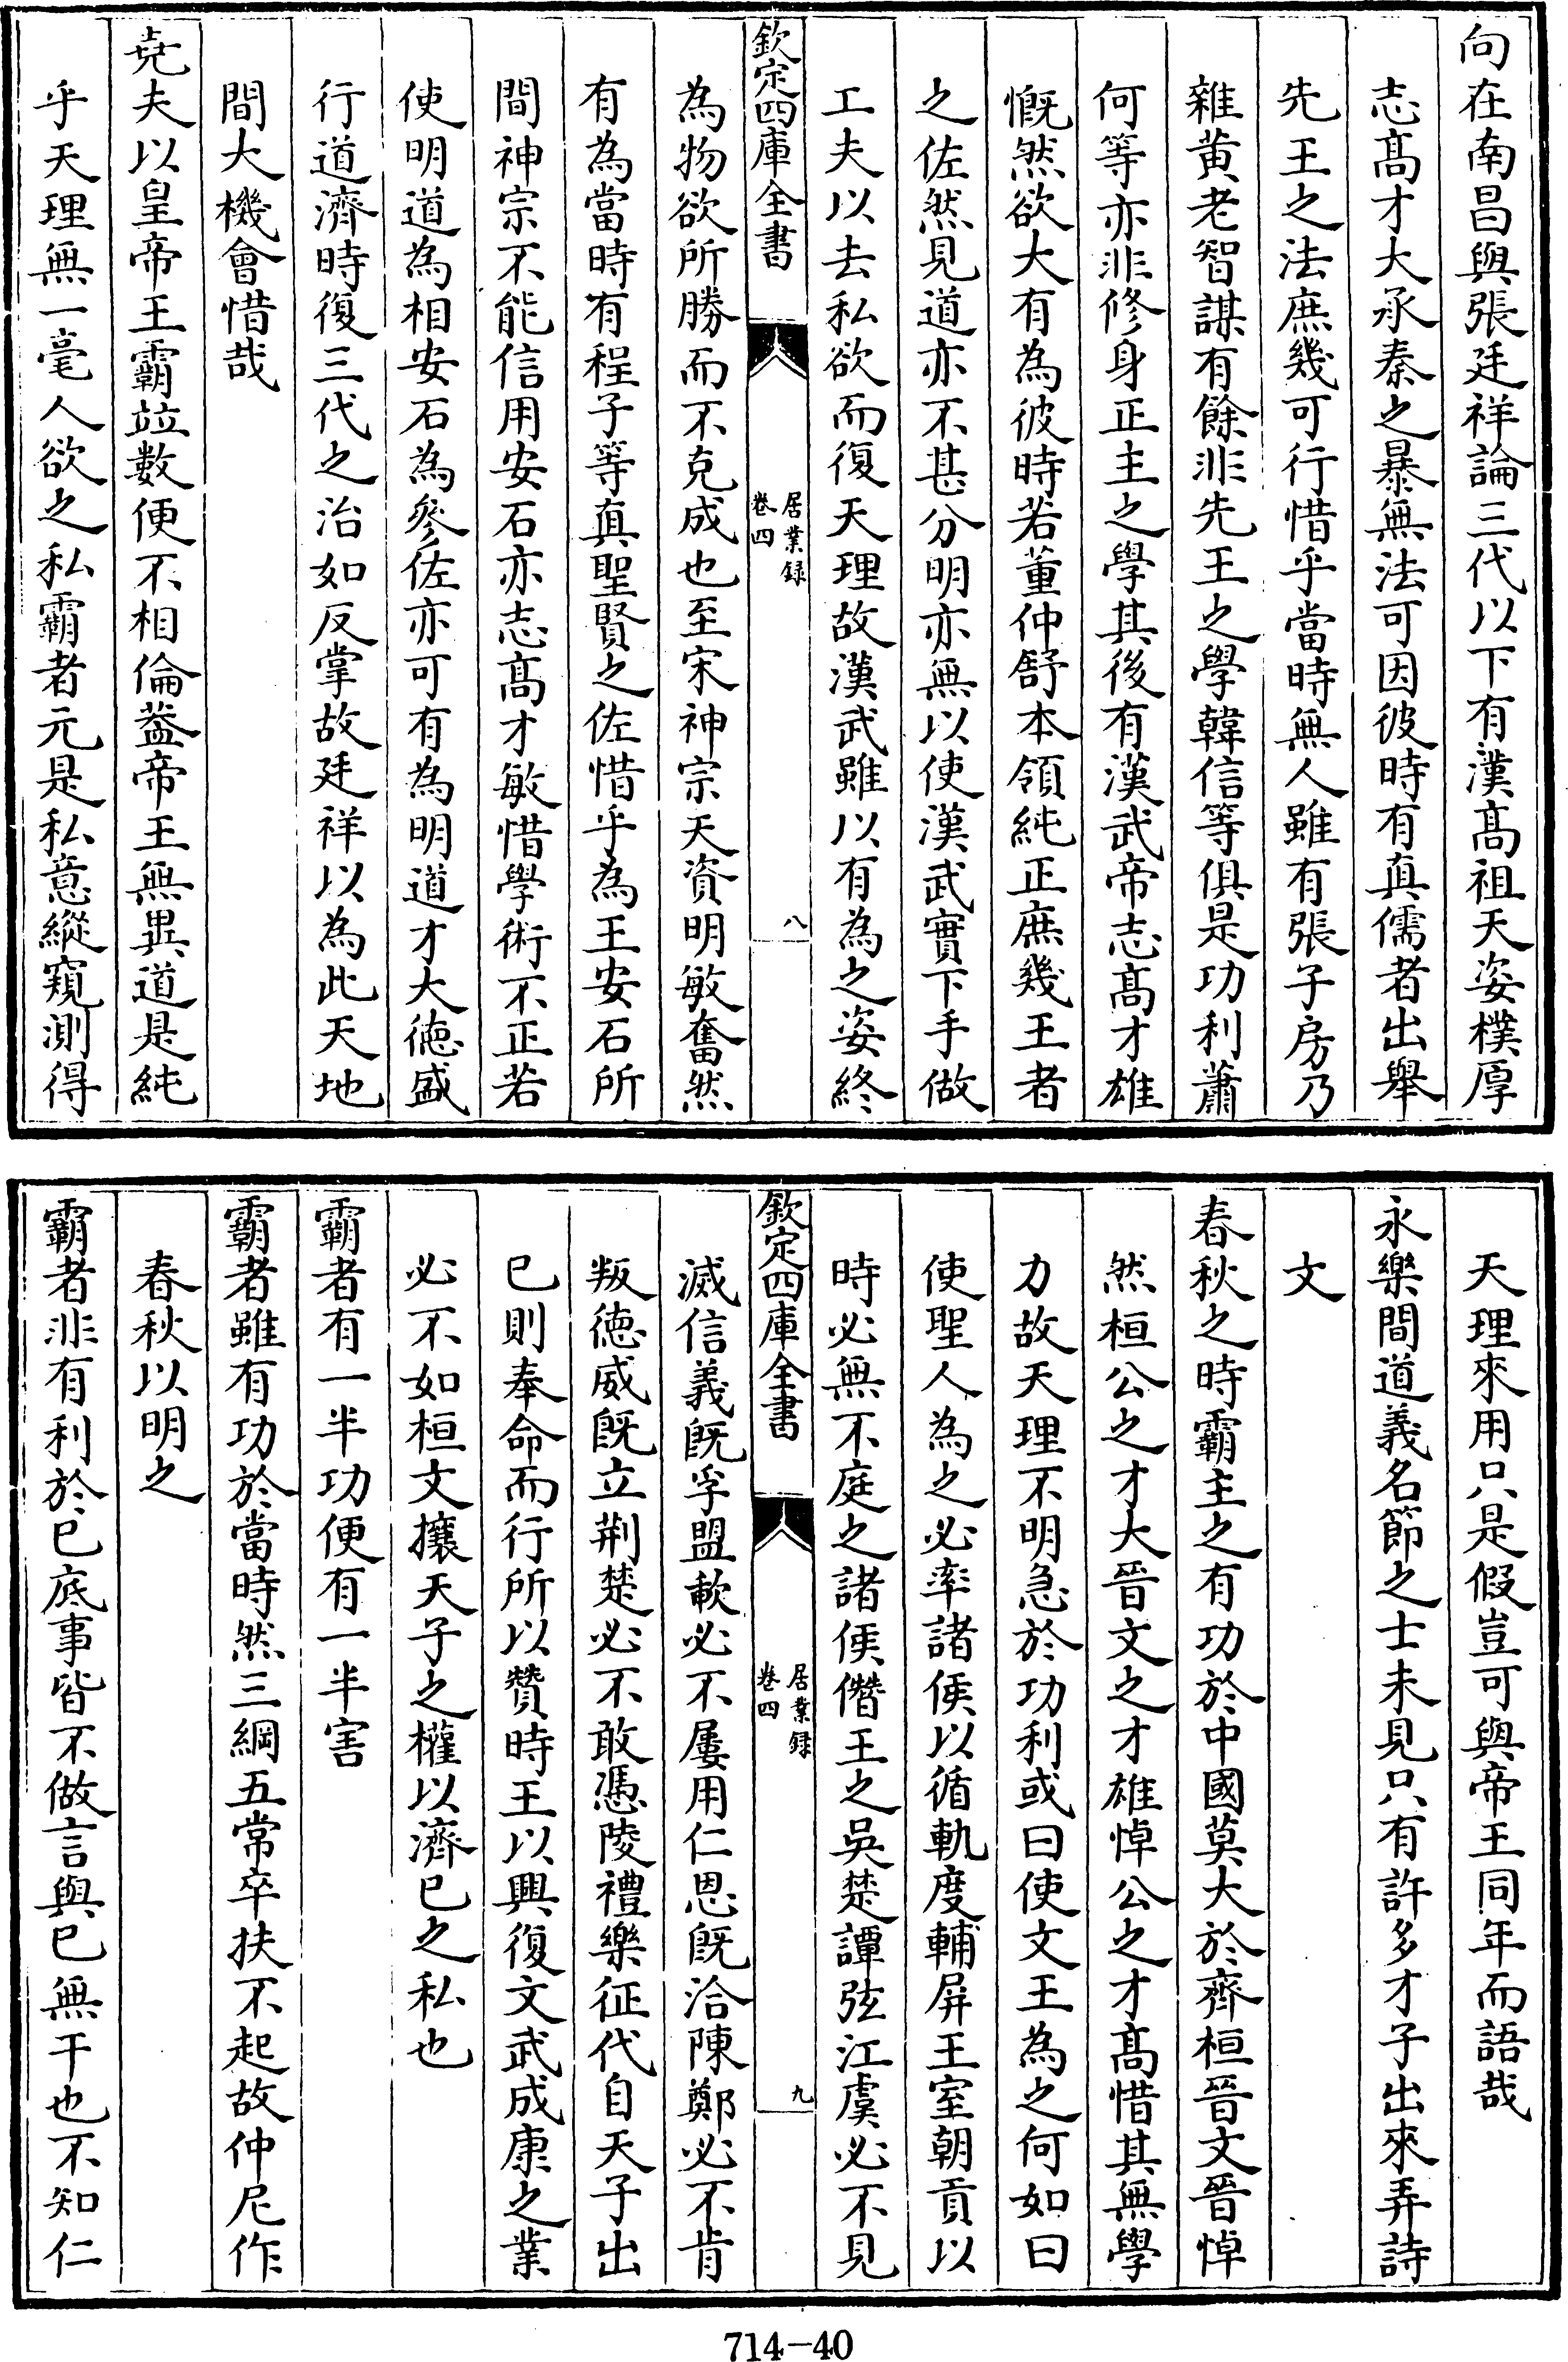 向在南昌與張廷祥論三代以下有漢髙祖天姿樸厚
志髙才大承秦之暴無法可因彼時有真儒者出舉
先王之法庶幾可行惜乎當時無人雖有張子房乃
雜黄老智謀有餘非先王之學韓信等俱是功利蕭
何等亦非修身正主之學其後有漢武帝志髙才雄
慨然欲大有為彼時若董仲舒本領純正庶幾王者
之佐然見道亦不甚分明亦無以使漢武實下手做
工夫以去私欲而復天理故漢武雖以有為之姿終
欽定四庫全書
居業録
卷四
八
為物欲所勝而不克成也至宋神宗天資明敏奮然
有為當時有程子等真聖賢之佐惜乎為王安石所
間神宗不能信用安石亦志髙才敏惜學術不正若
使明道為相安石為參佐亦可有為明道才大徳盛
行道濟時復三代之治如反掌故廷祥以為此天地
間大機會惜哉
堯夫以皇帝王霸竝數便不相倫葢帝王無異道是純
乎天理無一毫人欲之私霸者元是私意縱窺測得
天理來用只是假豈可與帝王同年而語哉
永樂間道義名節之士未見只有許多才子出來弄詩
文
春秋之時霸主之有功於中國莫大於齊桓晉文晉悼
然桓公之才大晉文之才雄悼公之才髙惜其無學
力故天理不明急於功利或曰使文王為之何如曰
使聖人為之必率諸侯以循軌度輔屏王室朝貢以
時必無不庭之諸侯僭王之吳楚譚弦江虞必不見
欽定四庫全書
居業録
卷四
九
滅信義既孚盟歃必不屢用仁恩既洽陳鄭必不肯
叛徳威既立荆楚必不敢憑陵禮樂征伐自天子出
已則奉命而行所以贊時王以興復文武成康之業
必不如桓文攘天子之權以濟已之私也
霸者有一半功便有一半害
霸者雖有功於當時然三綱五常卒扶不起故仲尼作
春秋以明之
霸者非有利於已底事皆不做言與已無干也不知仁
714-40